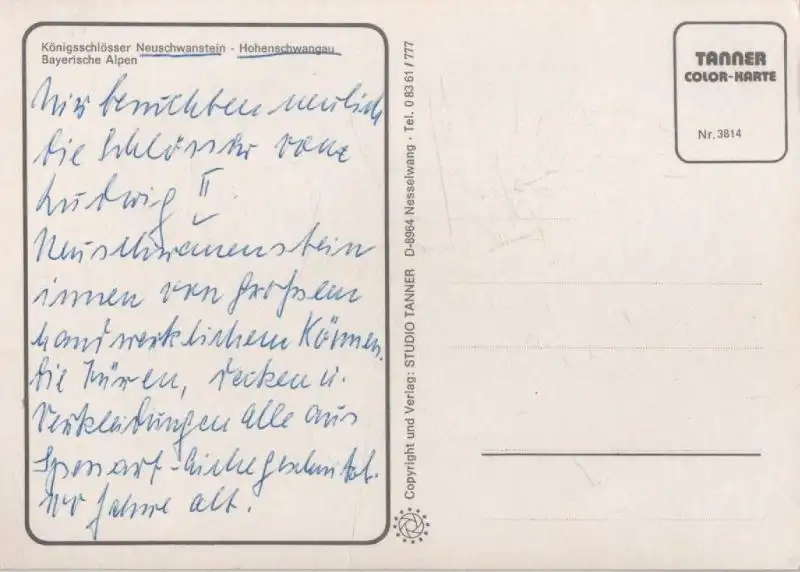 Königsschlösser Neuschwanstein - Hohenschwangau
Bayerische Alpen
Wir besuchten neulich
die Schlösser von
Ludwig II
Neuschwanenstein
innen von großem
handwerklichem Können.
Die Türen, Decken u.
Verkleidungen alle aus
Spessart-Eiche geschnitzt.
100 Jahre alt.
Copyright und Verlag: STUDIO TANNER D-8964 Nesselwang · Tel. 0 83 61 / 777
TANNER
COLOR-KARTE
Nr. 3814